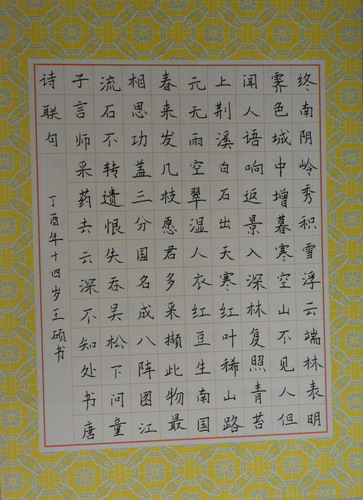 终南阴岭秀积雪浮云端林表明
霁色城中增暮寒空山不见人但
闻人语响返景入深林复照青苔
上荆溪白石出天寒红叶稀山路
元无雨空翠湿人衣红豆生南国
春来发几枝愿君多采撷此物最
相思功盖三分国名成八阵图江
流石不转遗恨失吞吴松下问童
子言师采药去云深不知处书唐
诗联句
丁酉年十四岁王硕书